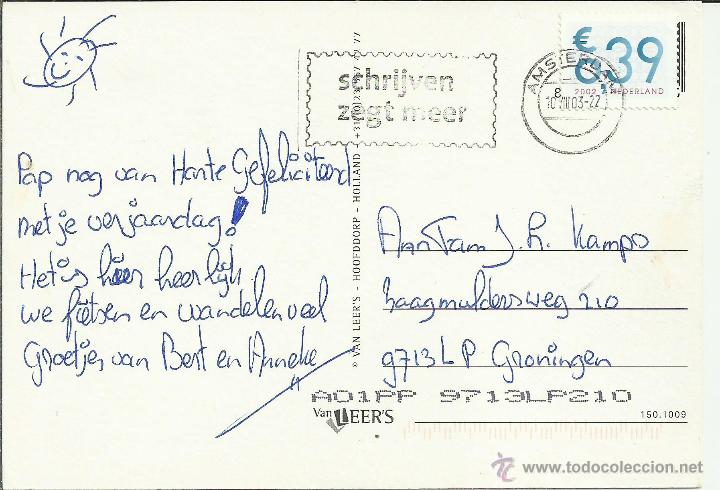 schrijven
zegt meer
AMSTERDAM
8
10 VIII 03-22
€ 0,39
2002 NEDERLAND
Pap nog van Harte Gefeliciteerd
met je verjaardag!
Het is hier heerlijk
we fietsen en wandelen veel
Groetjes van Bert en Anneke
© VAN LEER'S - HOOFDDORP - HOLLAND
Aan Fam J. H. Kampo
Zaagmuldersweg 210
9713 LP Groningen
A01PP 9713LP210
Van LEER'S
150.1009
www.todocoleccion.net